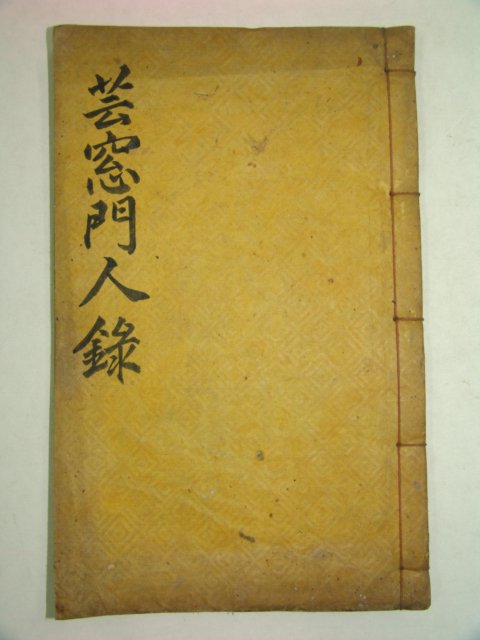 芸窓門人錄